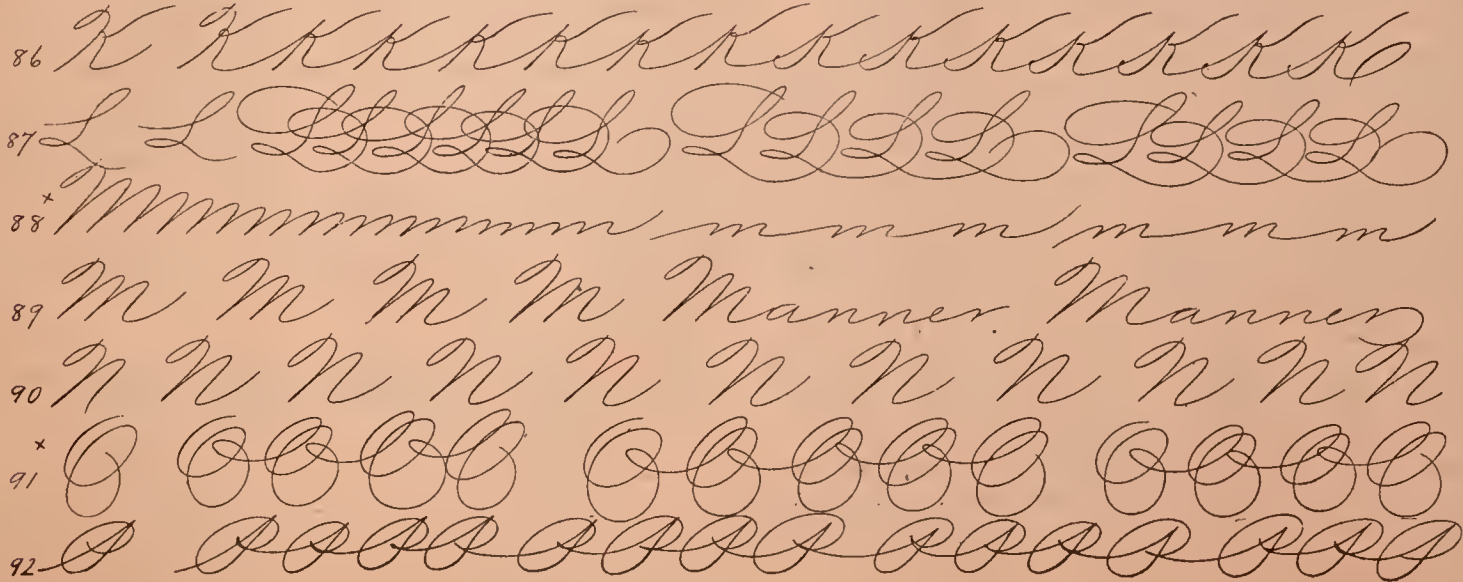 86 K K K K K K K K K K K K K K K
87 L L LLLLLL LLLL LLLL
88 x Mmmmmm m m m m m m
89 M M M M Manner Manner
90 N N N N N N N N N N N
91 x O OOOO OOOOO OOOO
92 P PPPP PPPP PPPP PPP